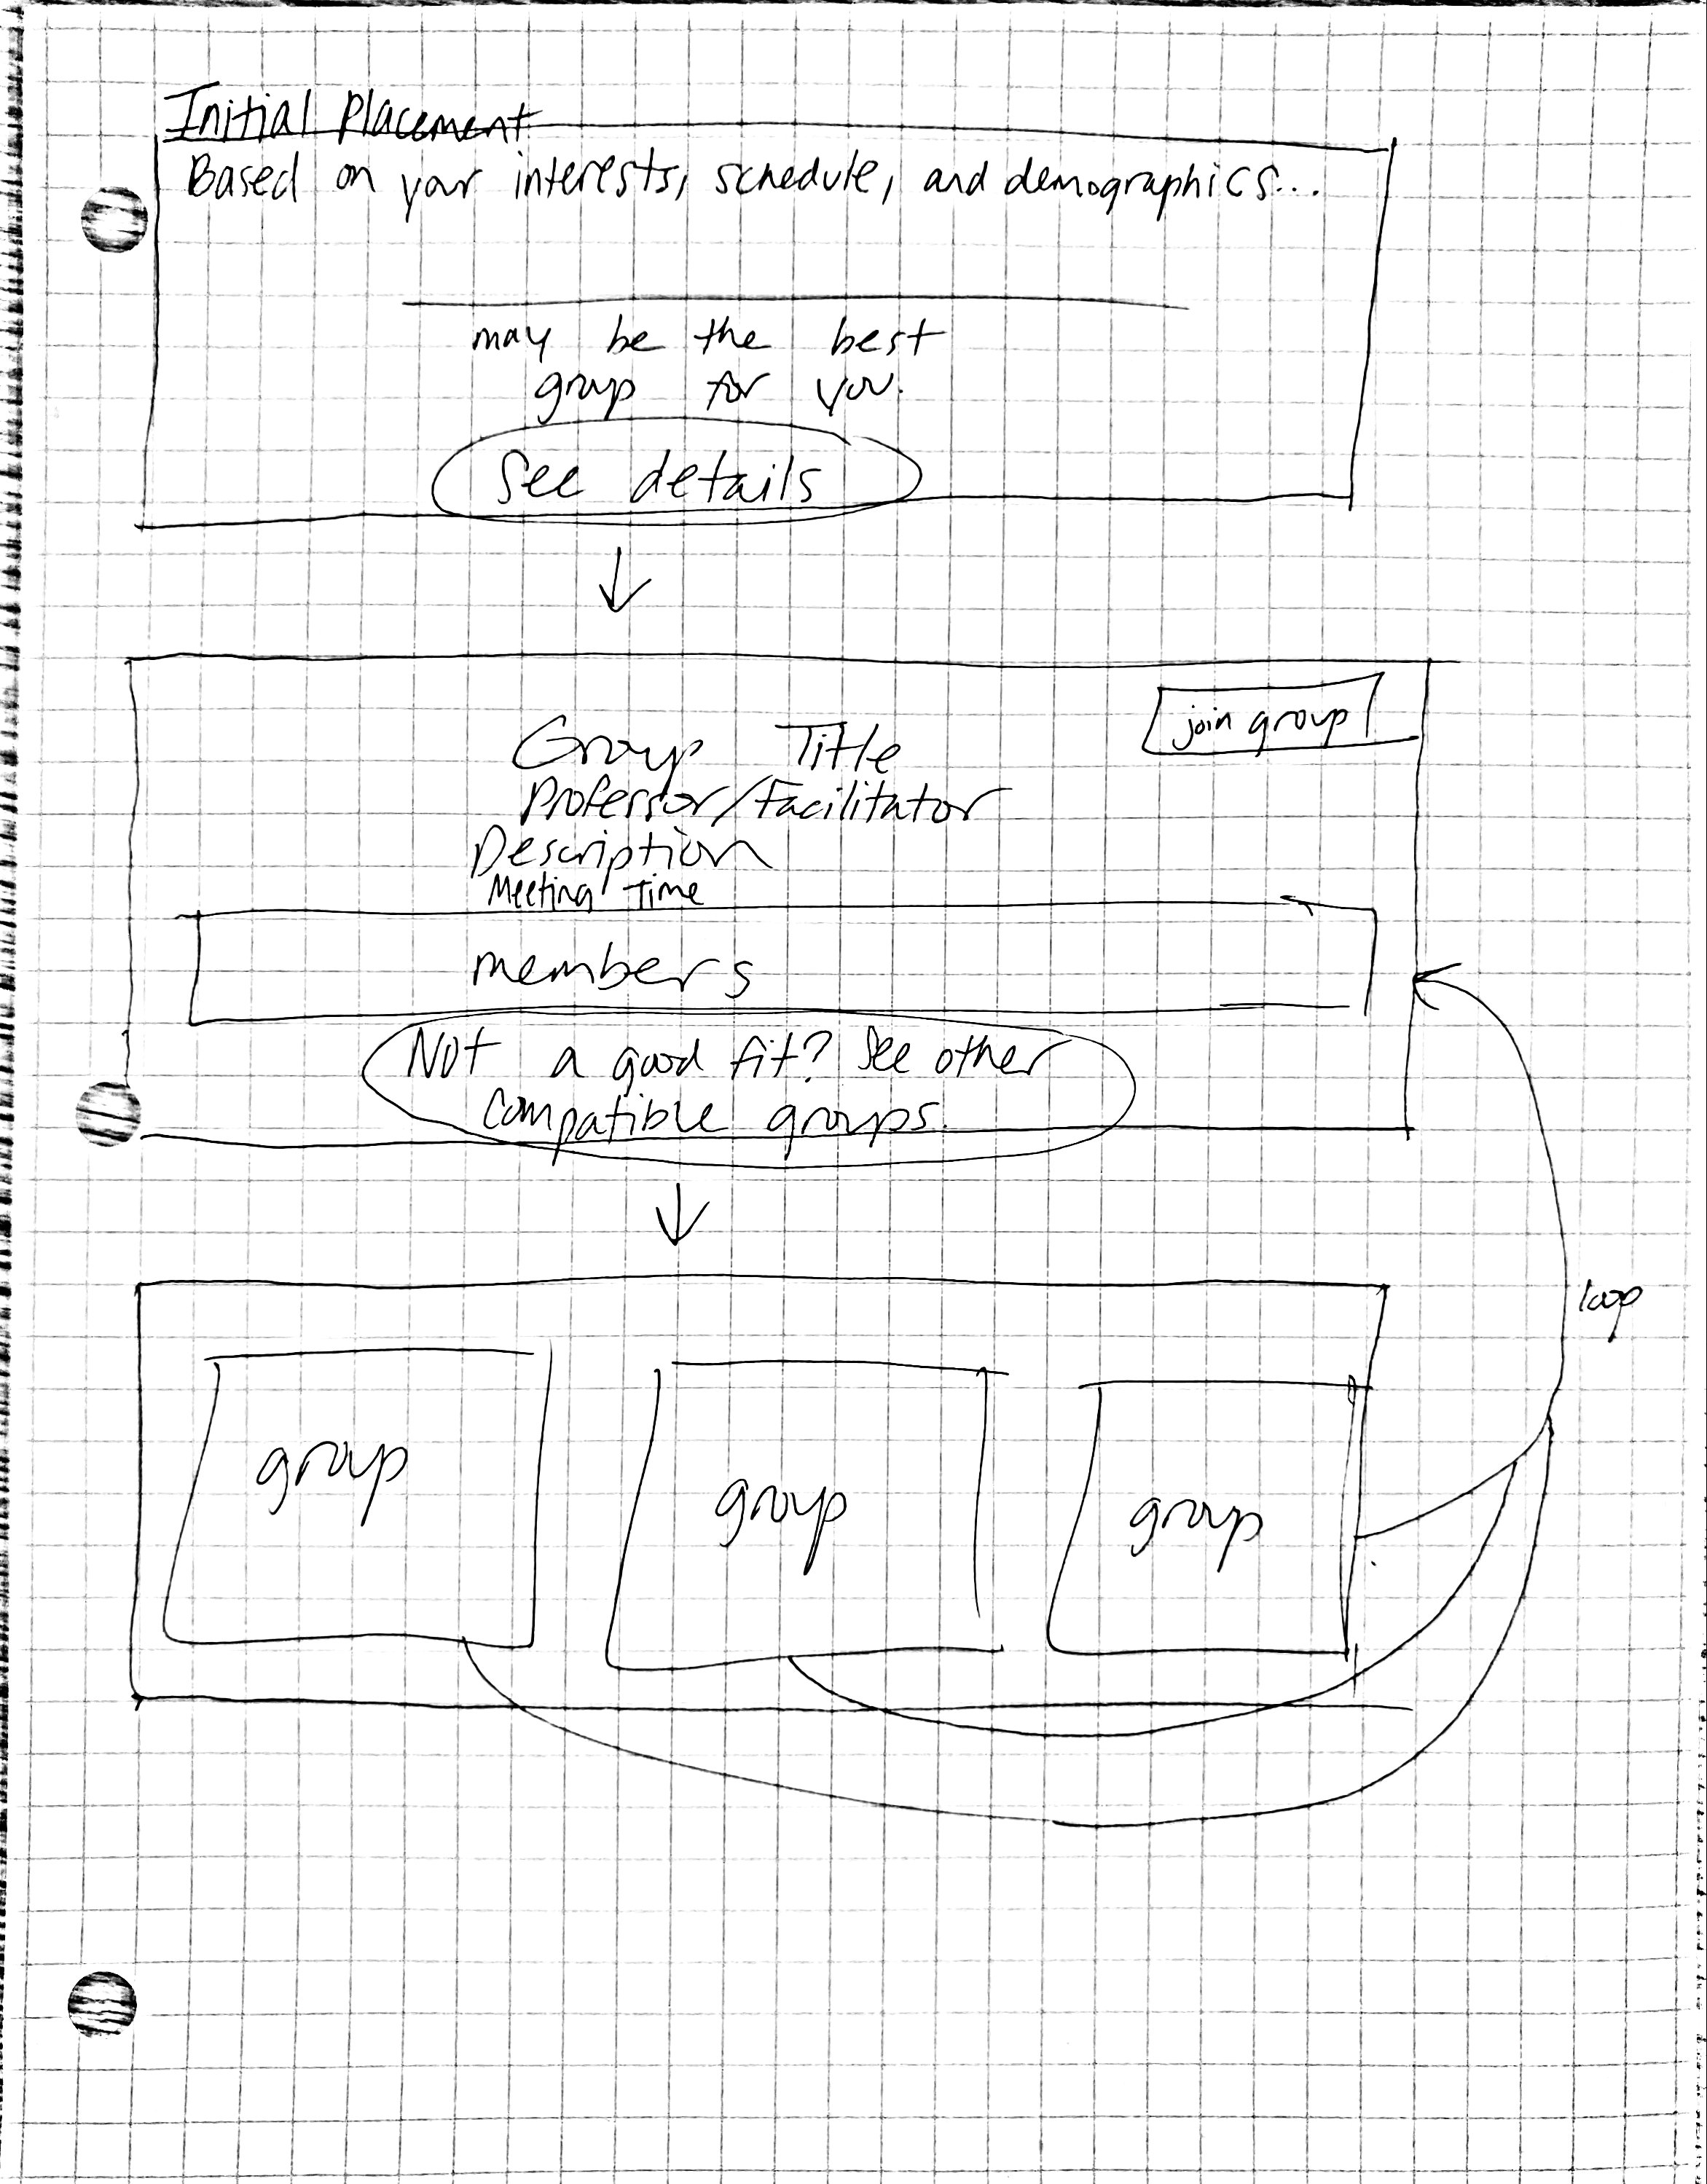 Initial Placement
Based on your interests, schedule, and demographics...
may be the best
group for you.
See details
join group
Group Title
Professor/Facilitator
Description
Meeting Time
members
Not a good fit? See other
compatible groups.
loop
group
group
group